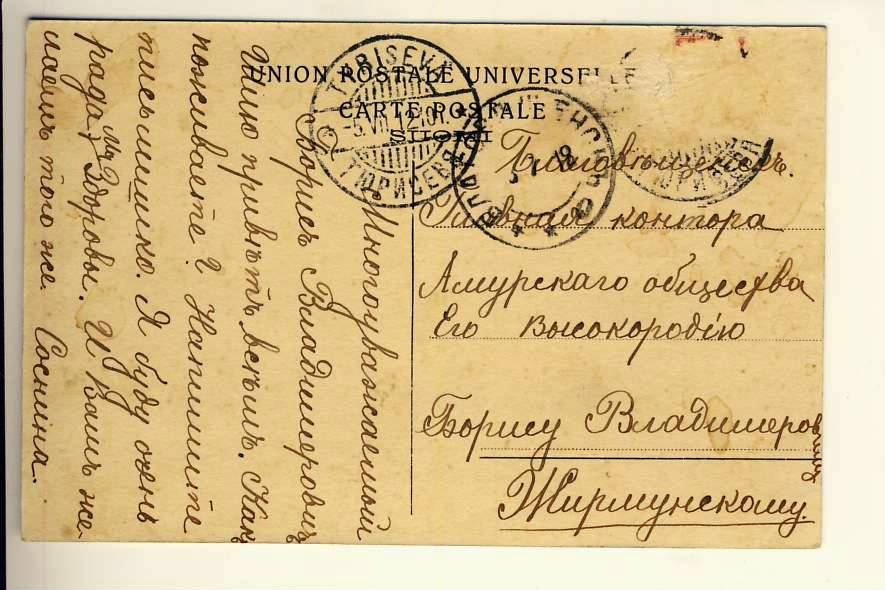 UNION POSTALE UNIVERSELLE
CARTE POSTALE
SUOMI
TYRISEVÄ
-5.VII.12.10
ТЮРИСЕВЯ
Благовѣщенскъ.
Главная контора
Амурскаго общества
Его Высокородію
Борису Владимеровичу
Жирмунскому.
Многоуважаемый
Борисъ Владимеровичъ
Шлю привѣтъ всѣмъ. Какъ
поживаете? Напишите
письмишко. Я буду очень
рада. Мы здоровы. И Вамъ же
лаемъ того же. Соснина.